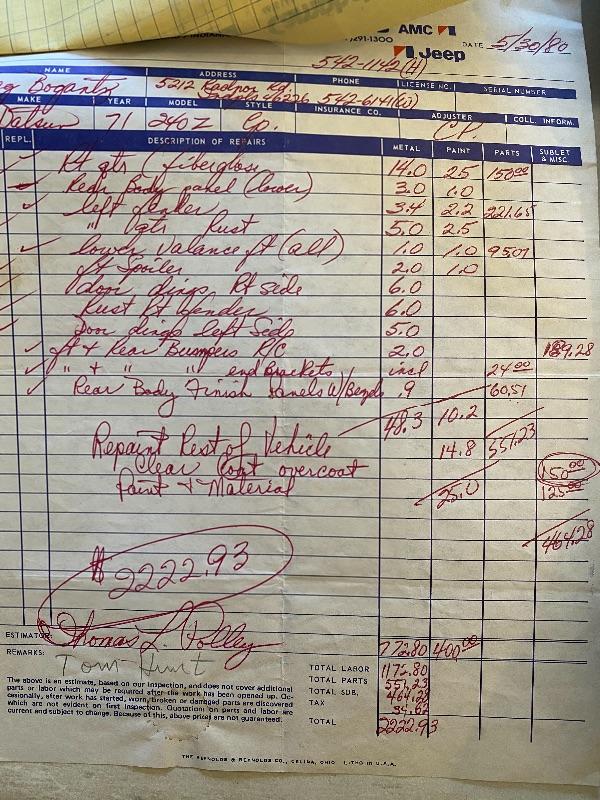 AMC
291-1300
Jeep
DATE 5/30/80
542-1142 (H)
NAME ADDRESS PHONE LICENSE NO. SERIAL NUMBER
Bogantz 5212 Rd. 542-6141(W)
MAKE YEAR MODEL STYLE INSURANCE CO. ADJUSTER COLL. INFORM.
Datsun 71 240Z Cp. C.P.
REPL. DESCRIPTION OF REPAIRS METAL PAINT PARTS SUBLET & MISC.
Rt qtr (fiberglass 14.0 2.5 150.00
Rear Body panel (lower) 3.0 1.0
left fender 3.4 2.2 221.65
" qtr Rust 5.0 2.5
lower Valance ft (all) 1.0 1.0 95.07
ft Spoiler 2.0 1.0
door dings Rt side 6.0
Rust Rt fender 6.0
Door dings left Side 5.0
ft + Rear Bumpers R/C 2.0 189.28
" + " " end Brackets incl 24.00
Rear Body Finish Panels W/Bends .9 60.51
48.3 10.2 551.23
Repaint Rest of Vehicle 14.8
Clear Coat overcoat 150.00
Paint + Material 25.0 125.00
464.28
$2222.93
ESTIMATOR Thomas L. Polley 772.80 400.00
REMARKS: Tom Hunt
The above is an estimate, based on our inspection, and does not cover additional
parts or labor which may be required after the work has been opened up. Oc-
casionally, after work has started, worn, broken or damaged parts are discovered
which are not evident on first inspection. Quotations on parts and labor are
current and subject to change. Because of this, above prices are not guaranteed.
TOTAL LABOR 1172.80
TOTAL PARTS 551.23
TOTAL SUB. 464.28
TAX 34.62
TOTAL 2222.93
THE REYNOLDS & REYNOLDS CO., CELINA, OHIO LITHO IN U.S.A.